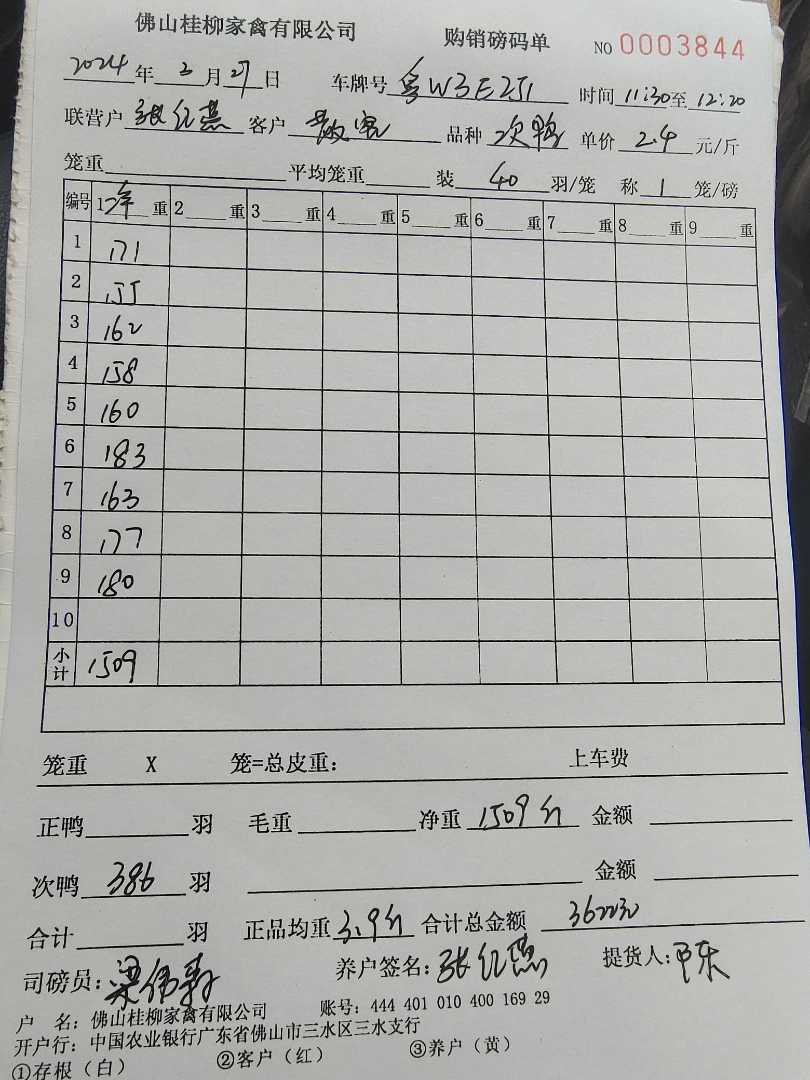 佛山桂柳家禽有限公司 购销磅码单 NO 0003844
2024年2月27日 车牌号 粤W3E251 时间 11:30至 12:20
联营户 张红燕 客户 散客 品种 次鸭 单价 2.4 元/斤
笼重 平均笼重 装 40 羽/笼 称 1 笼/磅
编号 1净重 2 重 3 重 4 重 5 重 6 重 7 重 8 重 9 重
1 171
2 155
3 162
4 158
5 160
6 183
7 163
8 177
9 180
10
小计 1509
笼重 X 笼=总皮重: 上车费
正鸭 羽 毛重 净重 1509斤 金额
次鸭 386 羽 金额
合计 羽 正品均重 3.9斤 合计总金额 3622元
司磅员: 梁伟 养户签名: 张红燕 提货人:
户 名: 佛山桂柳家禽有限公司 账号: 444 401 010 400 169 29
开户行: 中国农业银行广东省佛山市三水区三水支行
①存根(白) ②客户(红) ③养户(黄)